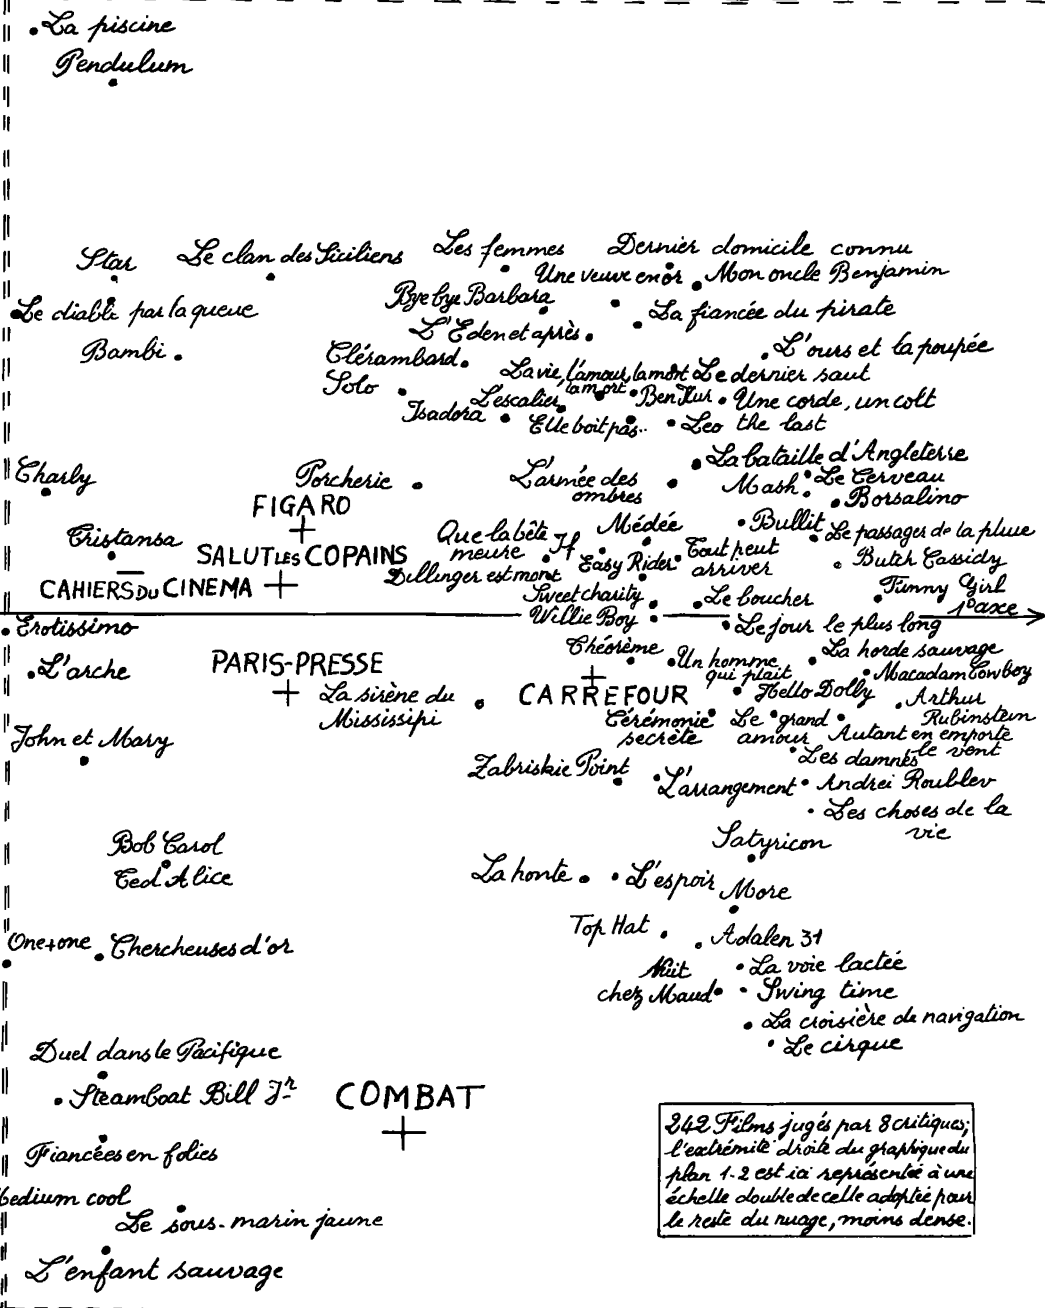 La piscine
Pendulum
Star
Le clan des Siciliens
Les femmes
Dernier domicile connu
Une veuve en or
Mon oncle Benjamin
Le diable par la queue
Bye bye Barbara
La fiancée du pirate
L'Eden et après
Bambi
Clérambard
L'ours et la poupée
La vie, l'amour, la mort
Le dernier saut
Solo
L'escalier
la mort
Ben Hur
Une corde, un colt
Isadora
Elle boit pas..
Leo the last
La bataille d'Angleterre
Charly
Porcherie
L'armée des
ombres
Mash
Le Cerveau
Borsalino
FIGARO
Médée
Bullit
Le passages de la pluie
Tristansa
SALUT LES COPAINS
Que la bête
meure
If
Easy Rider
Tout peut
arriver
Butch Cassidy
CAHIERS DU CINEMA
Dillinger est mort
Sweet charity
Le boucher
Funny Girl
1º axe
Willie Boy
Erotissimo
Le jour le plus long
Théorème
La horde sauvage
L'arche
PARIS-PRESSE
Un homme
qui plait
Macadam Cowboy
La sirène du
Mississipi
CARREFOUR
Hello Dolly
Arthur
Rubinstein
Cérémonie
secrète
Le grand
amour
Autant en emporte
le vent
John et Mary
Les damnés
Zabriskie Point
L'arrangement
Andrei Roublev
Les choses de la
vie
Bob Carol
Ted Alice
Satyricon
La honte
L'espoir
More
Top Hat
Adalen 31
One+one
Chercheuses d'or
La voie lactée
Nuit
chez Maud
Swing time
La croisière de navigation
Le cirque
Duel dans le Pacifique
Steamboat Bill Jr
COMBAT
Fiancées en folies
Medium cool
Le sous-marin jaune
L'enfant sauvage
242 Films jugés par 8 critiques;
l'extrémité droite du graphique du
plan 1-2 est ici représentée à une
échelle double de celle adoptée pour
le reste du nuage, moins dense.